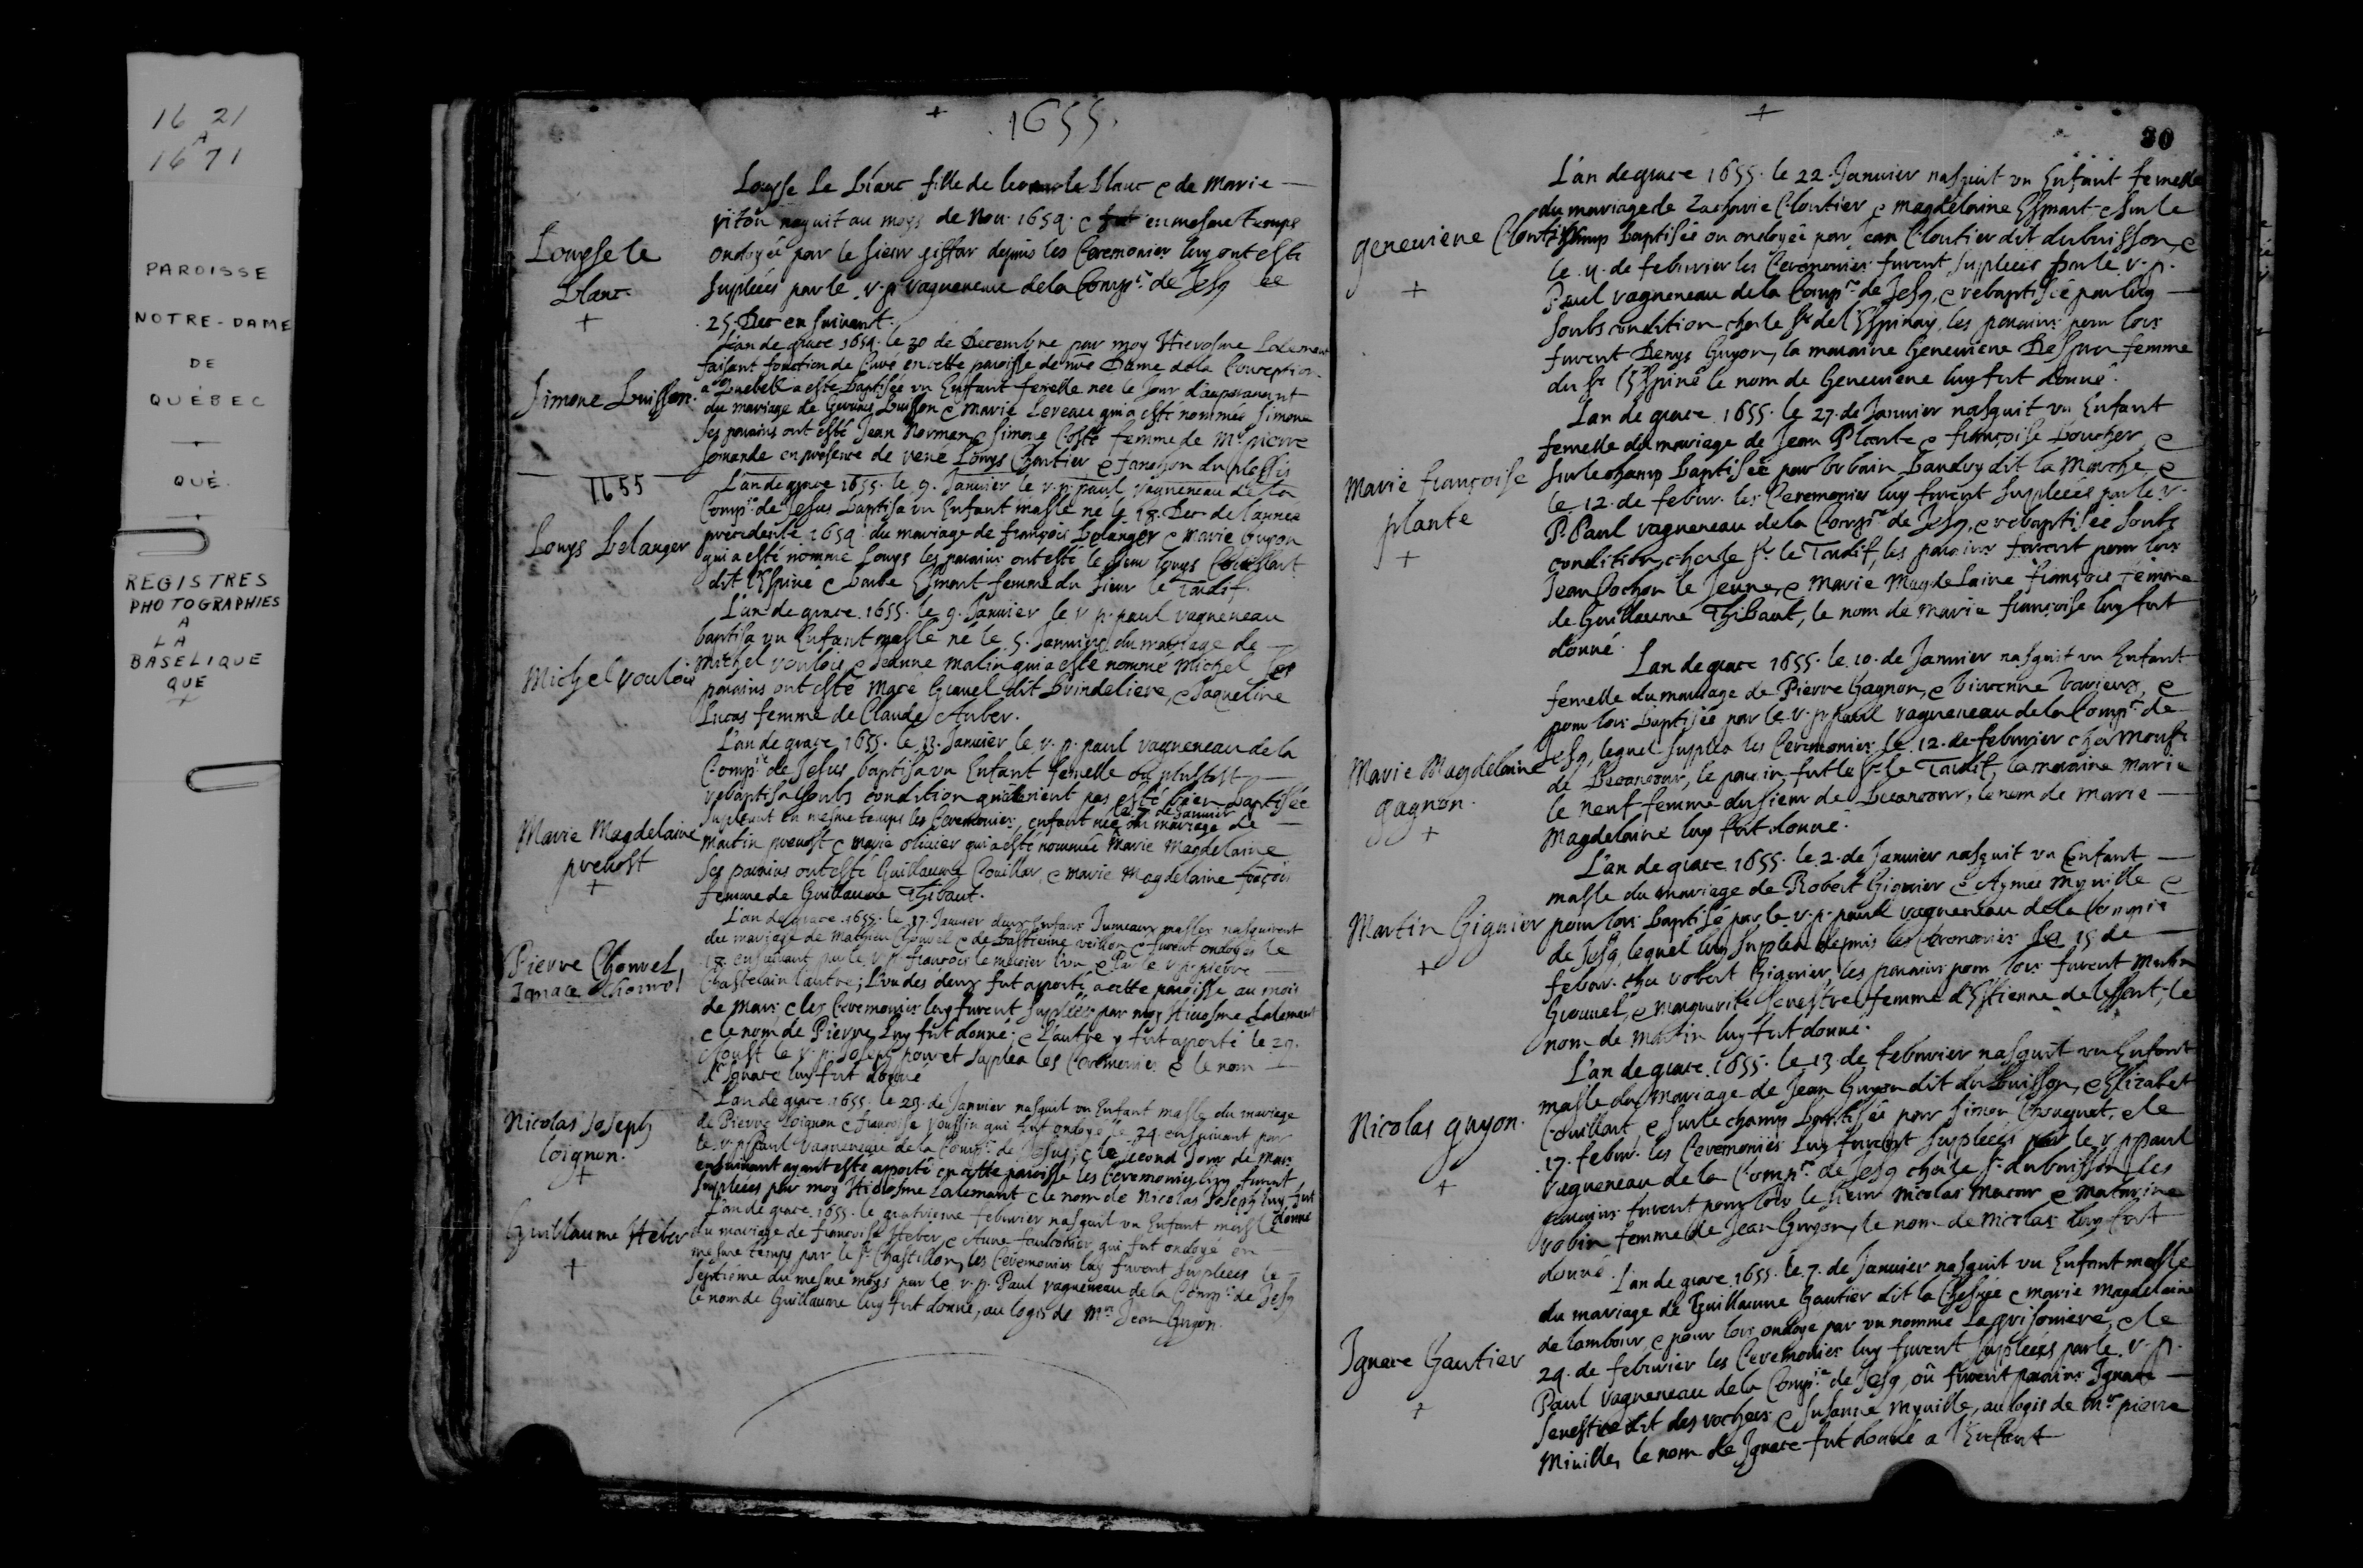 16 21
A
16 71
PAROISSE
NOTRE-DAME
DE
QUÉBEC
QUÉ.
REGISTRES
PHOTOGRAPHIES
A
LA
BASELIQUE
QUE
+
+ 1655.
Louyse le
blanc
+
Louyse Le blanc fille de le blanc e de Marie
naquit au moys de Nou. 1654. e fut en mesme temps
ondoyée par le sieur giffar depuis les Ceremonies luy ont esté
supleées par le v. p. vagueneau de la Comp.ie de Jesq le
25. Dec ensuivant.
Simone buisson.
L'an de grace 1654. le 30 de Decembre par moy Hierosme Lalemant
faisant fonction de Curé en cette paroisse de nre Dame de la Conception
a Quebek a esté baptisée un Enfant femelle nee le Jour d'auparavant
du mariage de Gervais buisson e Marie Lereau qui a esté nommée Simone
Ses parains ont esté Jean Norman e Simone Costé femme de Mr pierre
Soumande en presence de René Louys Chartier e fanchon du plessis
1655
Louys Belanger
L'an de grace 1655. le 9. Janvier le v. p. paul vagueneau de la
Comp.ie de Jesus baptisa un Enfant masle né le 18. Dec de l'annee
precedente 1654. du mariage de françois Belanger e Marie Guyon
qui a esté nommé Louys les parains ont esté le sieur Louys Couillart
dit l'Espiné e barbe Esmart femme du sieur le Tardif.
Michel voulois
L'an de grace 1655. le 9. Janvier le v. p. paul vagueneau
baptisa un Enfant masle né le 5. Janvier du mariage de
Michel voulois e Jeanne malin qui a esté nommé Michel Ses
parains ont esté Macé Gravel dit brindeliere, e Jaqueline
Lucas femme de Claude Auber.
Marie Magdelaine
prevost
+
L'an de grace 1655. le 13. Janvier le v. p. paul vagueneau de la
Comp.ie de Jesus baptisa un Enfant femelle ou plustost
rebaptisa soubs condition pas esté bien baptisée
le 7 de Janvier
supleant en mesme temps les Ceremonies, enfant nee du mariage de
Martin prevost e marie olivier qui a esté nommée Marie Magdelaine
Ses parains ont esté Guillaume Couillar, e marie Magdelaine françois
femme de Guillaume Thibaut.
Pierre Chouvel,
Ignace Chouvel
L'an de grace 1655. le 17. Janvier deux Enfans Jumeaux masles nasquirent
du mariage de Mathieu Chouvel e de bastienne veillon e furent ondoyés le
18 ensuivant par le v. p. françois le mercier l'un e Par le v. p. pierre
Chastelain l'autre; L'un des deux fut aporté a cette paroisse au mois
de Mars e les Ceremonies luy furent supleées par moy Hierosme Lalemant
e le nom de Pierre luy fut donné; e L'autre y fut aporté le 29.
Aoust le v. p. Joseph poncet suplea les Ceremonies e le nom
d'Ignace luy fut donné
Nicolas Joseph
loignon.
+
L'an de grace 1655. le 23. de Janvier nasquit un Enfant masle du mariage
de Pierre Loignon e françoise Roussin qui fut ondoyé le 24 ensuivant par
le v. p. Paul Vagueneau de la Comp.ie de Jesus; e le second Jour de Mars
ensuivant ayant esté apporté en cette paroisse les Ceremonies luy furent
supleées par moy Hierosme Lalemant e le nom de Nicolas Joseph luy fut
donné
Guillaume Heber
+
L'an de grace 1655. le quatrieme febuvier nasquit un Enfant masle
du mariage de françoise Heber, e Anne fauconier qui fut ondoyé en
mesme temps par le Sr Chastillon, les Ceremonies luy furent supleees le
septieme du mesme moys par le v. p. Paul vagueneau de la Comp.ie de Jesq
le nom de Guillaume luy fut donné, au logis de Mr Jean Guyon.
+
30
genevieve Cloutier
+
L'an de grace 1655. le 22. Janvier nasquit un Enfant femelle
du mariage de Zacharie Cloutier e Magdelaine Esmart e sur le
champ baptisée ou ondoyée par Jean Cloutier dit dubuisson, e
le 4. de febuvier les Ceremonies furent supleees par le v. p.
Paul vagueneau de la Comp.ie de Jesq, e rebaptisée par luy
soubs condition ches le Sr de l'Espinay, les parains pour lors
furent Denys Guyon, la maraine Genevieve Despres femme
du Sr l'Espiné le nom de Genevieve luy fut donné.
Marie françoise
plante
+
L'an de grace 1655. le 27. de Janvier nasquit un Enfant
femelle du mariage de Jean Plante e françoise boucher, e
sur le champ baptisée par Urbain baudry dit la Marche, e
le 12. de febur. les Ceremonies luy furent supleeés par le v.
P. Paul vagueneau de la Comp.ie de Jesq, e rebaptisée soubs
condition, ches le Sr le Tardif, les parains furent pour lors
Jean Cochon le Jeune, e Marie Magdelaine françois femme
de Guillaume Thibaut, le nom de Marie françoise luy fut
donné.
Marie Magdelaine
gagnon.
+
L'an de grace 1655. le 10. de Janvier nasquit un Enfant
femelle du mariage de Pierre Gagnon, e e
pour lors baptisée par le v. p. Paul vagueneau de la Comp.ie de
Jesq, lequel suplea les Ceremonies le 12. de febuvier ches Monsr
de Becancour, le parain fut le Sr le Tardif, la maraine Marie
le neuf femme du sieur de Becancour, le nom de Marie
Magdelaine luy fut donné.
Martin Giguier
+
L'an de grace 1655. le 2. de Janvier nasquit un Enfant
masle du mariage de Robert Giguier e Aymée Myville e
pour lors baptisé par le v. p. paul vagueneau de la Compie
de Jesq, lequel luy suplea depuis les Ceremonies le 15 de
febur. ches robert Giguier, les parains pour lors furent Martin
Grouvel, e marguerite Senestre femme d'Estienne de lessart, le
nom de Martin luy fut donné.
Nicolas guyon.
+
L'an de grace 1655. le 13. de febuvier nasquit un Enfant
masle du Mariage de Jean Guyon dit du buisson, e Elizabet
Couillart e sur le champ baptisée par simon e le
17. febur. les Ceremonies luy furent suppleées par le v. p. paul
vagueneau de la Comp.ie de Jesq ches le Sr dubuisson, les
parains furent pour lors le sieur Nicolas Macar e Maturine
robin femme de Jean Guyon, le nom de Nicolas luy fut
donné.
Ignace Gautier
+
L'an de grace 1655. le 7. de Janvier nasquit un Enfant masle
du mariage de Guillaume Gautier dit la Chesnée e marie Magdelaine
de lambour, e pour lors ondoyé par un nommé La grisoniere, e le
24. de febuvier les Ceremonies luy furent supleées par le v. p.
Paul vagueneau de la Comp.ie de Jesq, où furent parains Ignace
Senestre dit des rochers e Susanne Myville, au logis de Mr pierre
Miville, le nom de Ignace fut donné a l'Enfant